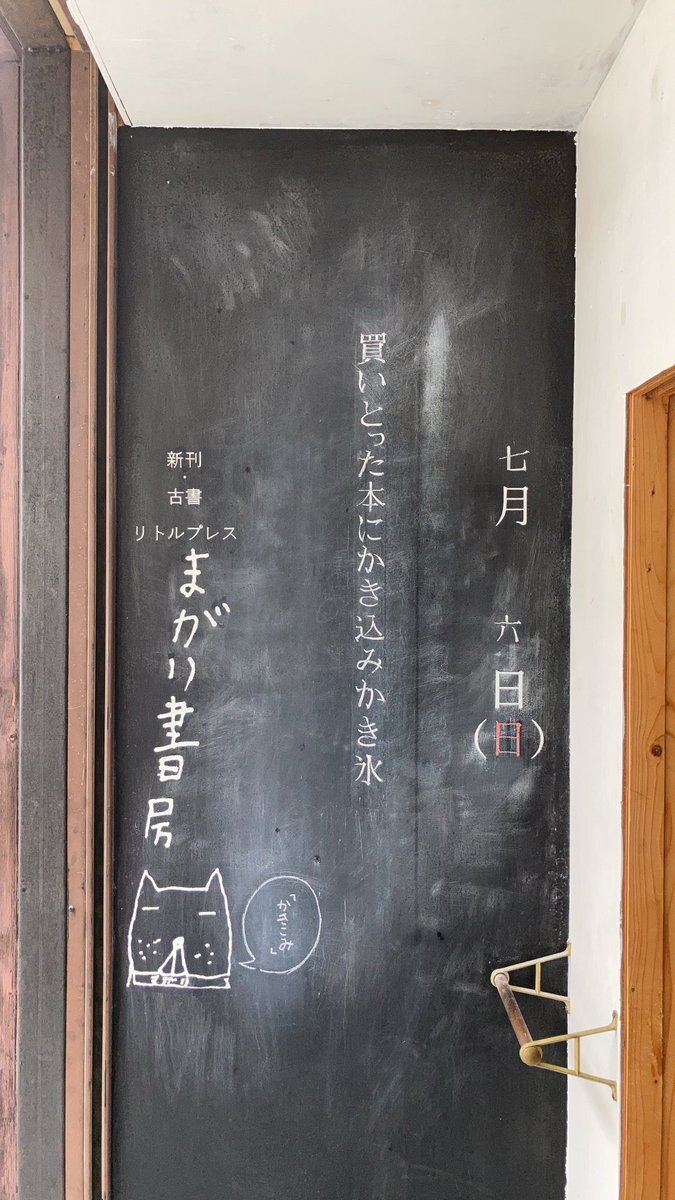 七月 六日(日)
買いとった本にかき込みかき氷
新刊
・
古書
リトルプレス
まがり書房
「かきこみ」